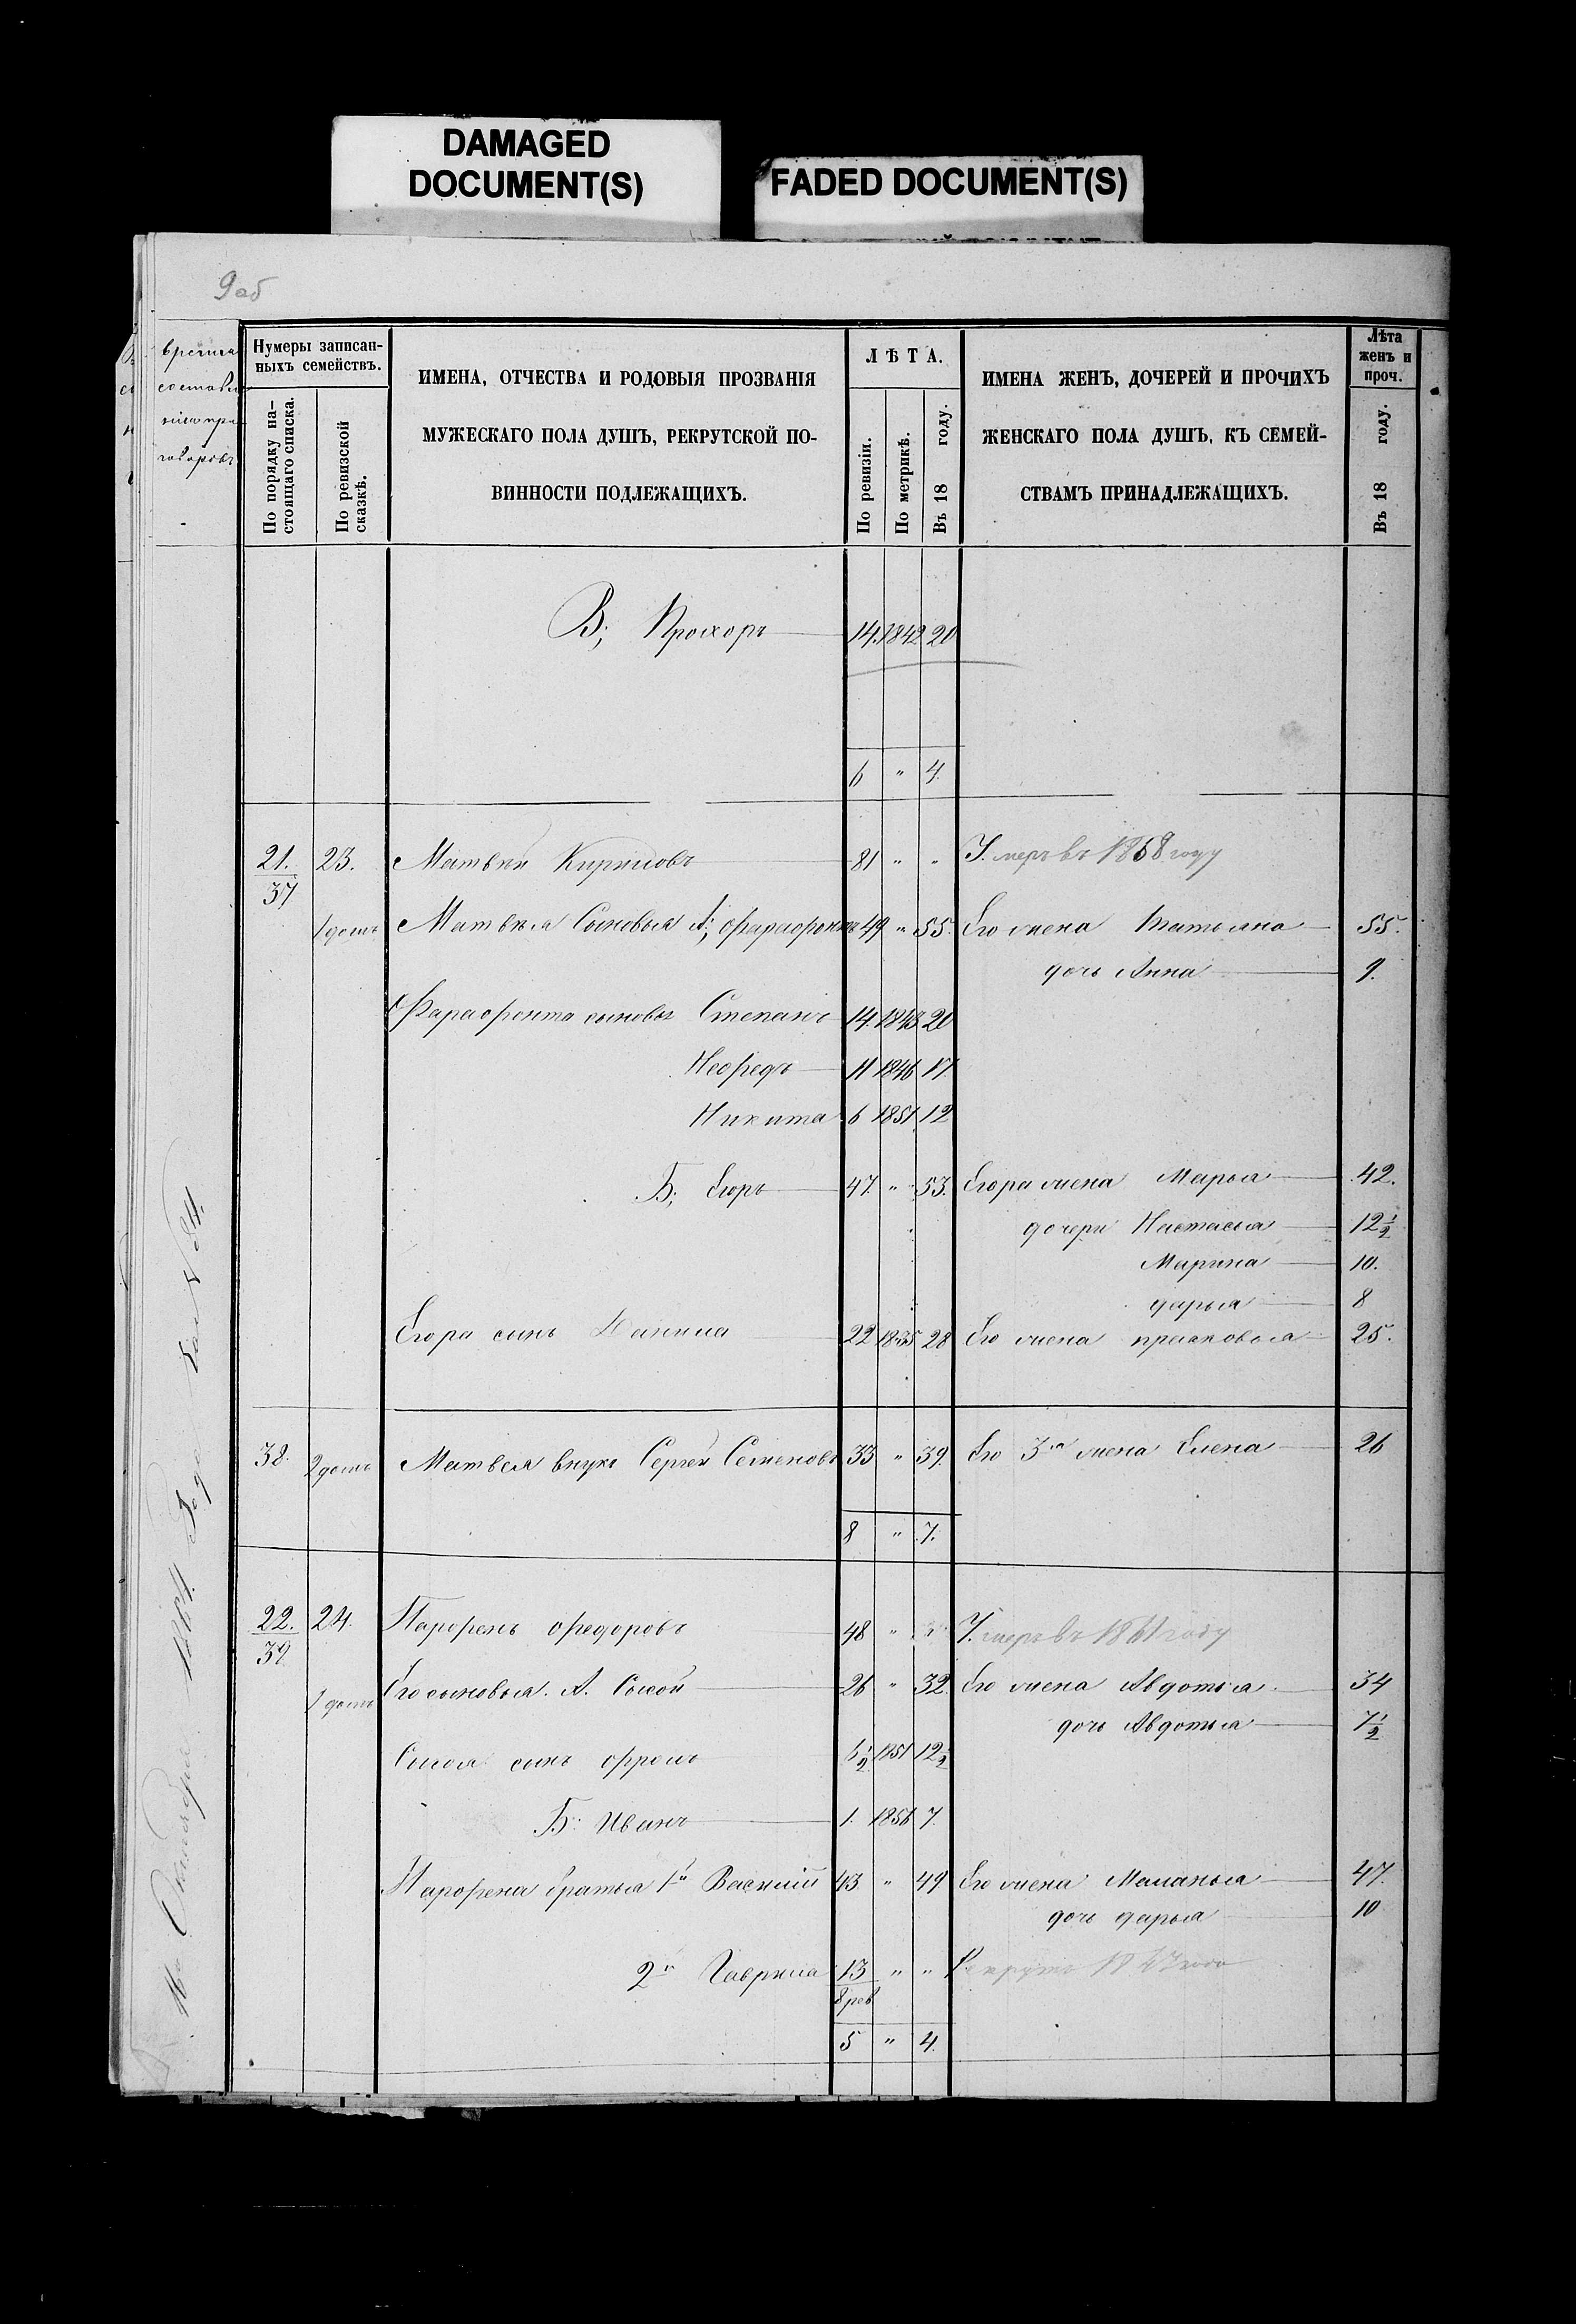 DAMAGED
DOCUMENT(S)
FADED DOCUMENT(S)
9об
Нумеры записан-
ныхъ семействъ.
По порядку на-
стоящаго списка.
По ревизской
сказкѣ.
ИМЕНА, ОТЧЕСТВА И РОДОВЫЯ ПРОЗВАНІЯ
МУЖЕСКАГО ПОЛА ДУШЪ, РЕКРУТСКОЙ ПО-
ВИННОСТИ ПОДЛЕЖАЩИХЪ.
ЛѢТА.
По ревизіи.
По метрикѣ.
Въ 18 году.
ИМЕНА ЖЕНЪ, ДОЧЕРЕЙ И ПРОЧИХЪ
ЖЕНСКАГО ПОЛА ДУШЪ, КЪ СЕМЕЙ-
СТВАМЪ ПРИНАДЛЕЖАЩИХЪ.
Лѣта
женъ и
проч.
Въ 18 году.
В; Прохоръ 14. 1842 20
6 " 4.
21. 23. Матвѣй Кириловъ 81 " " Умеръ въ 1858 году
37
1 домъ Матвѣя Сыновья А; Фарафонтъ 49 " 55. Его жена Татьяна 55.
дочь Анна 9.
Фарафонта сыновья Степанъ 14. 1843 20
Нефедъ 11 1846 17.
Никита 6 1851 12
Б; Егоръ 47. " 53. Егора жена Марья 42.
дочери Настасья 12 1/2
Марина 10.
дарья 8
Егора сынъ Данила 22 1835 28 Его жена прасковья 25.
38. 2 домъ Матвея внукъ Сергей Семеновъ 33 " 39. Его 3я жена Елена 26
8 " 7.
22. 24. Парфенъ Федоровъ 48 " " Умеръ въ 1861 году
39
1 домъ Его сыновья. А. Сысой 26 " 32. Его жена Авдотья 34
дочь Авдотья 7 1/2
Сысоя сынъ Фролъ 6 1/2 1851 12 1/2
Б: Иванъ 1. 1856 7.
Парфена братья 1й Василий 43 " 49 Его жена Маланья 47.
дочь дарья 10
2й Гаврила 13 " "
8 рев
5 " 4.